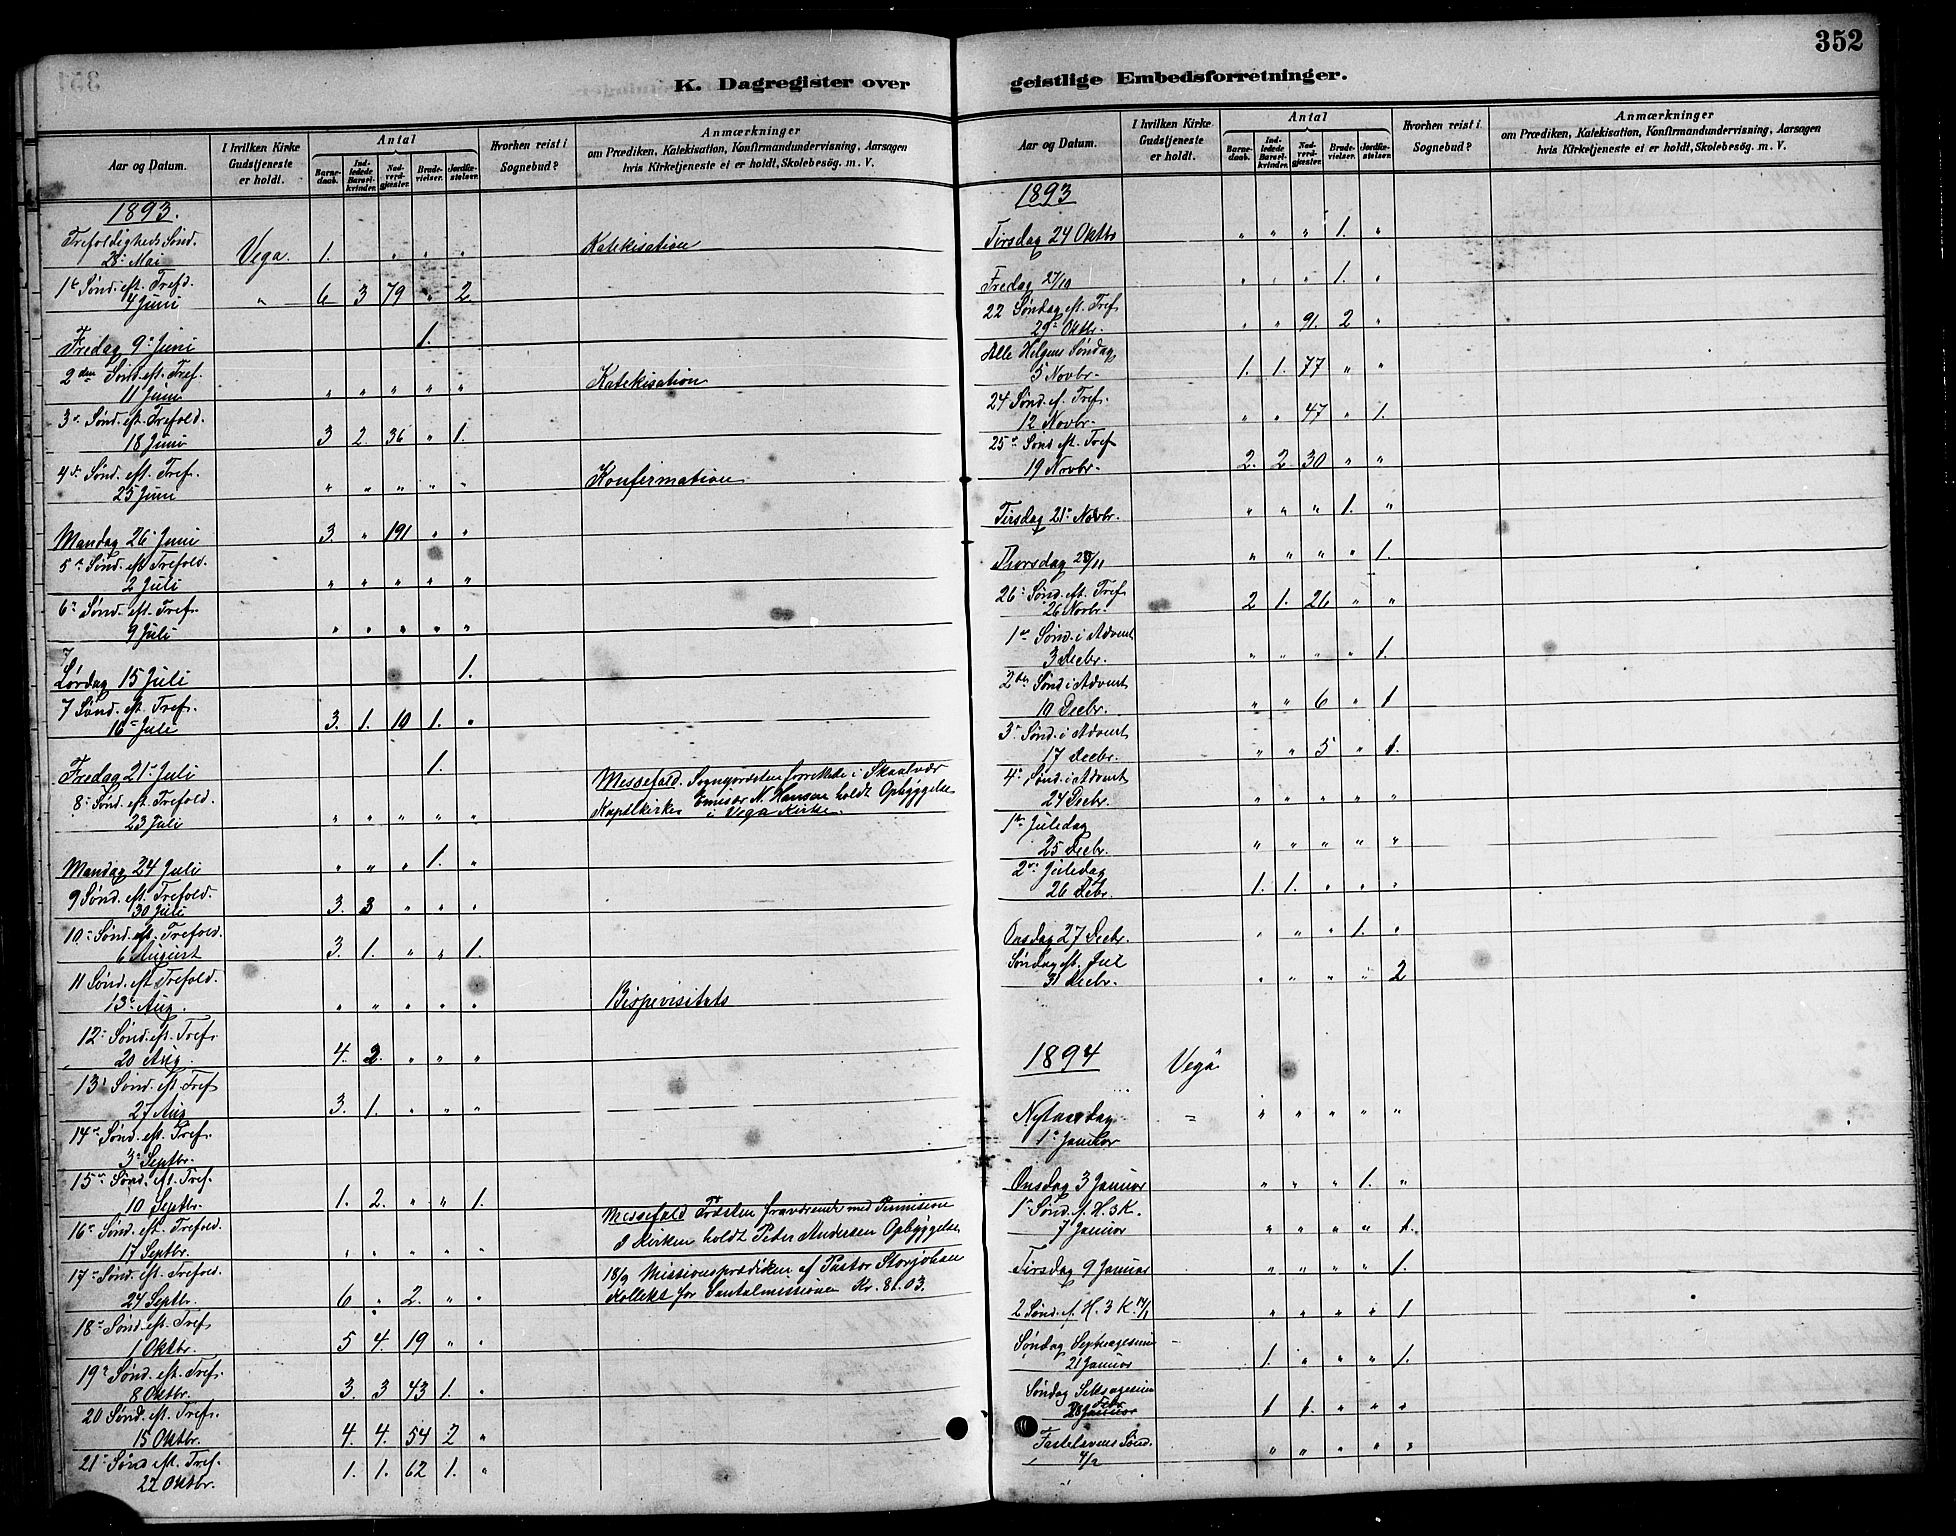 352
K. Dagregister over
geistlige Embedsforretninger.
Aar og Datum.
I hvilken Kirke Gudstjeneste er holdt.
Antal
Barnedaab.
Indledede Barselkvinder.
Nadverdgjæster.
Brudevielser.
Jordfæstelser.
Hvorhen reist i Sognebud?
Anmærkninger
om Prædiken, Katekisation, Konfirmandundervisning, Aarsagen
hvis Kirketjeneste ei er holdt, Skolebesøg. m. V.
1893.
Trefoldigheds Sønd.
28 Mai Vega. 1. " " " Katekisation
1te Sønd. eft. Trefd.
4 Juni " 6 3 79 " 2
Fredag 9 Juni 1.
2den Sønd. eft. Tref.
11 Juni " " " " " Katekisation
3 Sønd. eft. Trefold.
18 Juni 3 2. 36 " 1.
4de Sønd. eft. Tref.
25 Juni " " " " " Konfirmation
Mandag 26 Juni 3. " 191 " "
5 Sønd. eft. Trefold.
2 Juli " " " " "
6 Sønd. eft. Tref.
9 Juli " " " " "
7
Lørdag 15 Juli 1.
7 Sønd. eft. Tref.
16 Juli 3. 1. 10 1. "
Fredag 21 Juli 1.
8 Sønd. eft. Trefold. Messefald. Sognepræsten forrettede i Skaalvær
23 Juli " " " " " Kapelkirke Emisær N. Hansen holdt Opbyggelse
i Vega Kirke
Mandag 24 Juli " " " 1. "
9 Sønd. eft. Trefold.
30 Juli 3. 3 " " "
10 Sønd. eft. Trefold.
6 August 3. 1. " " 1.
11 Sønd. eft Trefold.
13 Aug. " " " " " Bispevisitats
12 Sønd. eft. Tref.
20 Aug. 4. 2. " " "
13 Sønd. eft. Tref
27 Aug 3. 1. " " "
14 Sønd. eft. Tref.
3 Septbr.
15 Sønd. eft. Tref.
10 Septbr. 1. 2. " " 1.
16 Sønd. eft. Trefold. Messefald Præsten fraværende med Permision
17 Septbr. " " " " " I Kirken holdt Peter Andersen Opbyggelse
17 Sønd. eft. Trefold. 18/9 Missionsprædiken af Pastor Storjohan
24 Septbr. 6 " 2. " " Kollekt for Santalmissionen Kr. 81.03.
18 Sønd. eft. Tref
1 Oktbr. 5 4. 19 " "
19 Sønd. eft. Tref.
8 Oktbr. 3. 3 43 1. "
20 Sønd. eft. Tref.
15 Oktbr. 4. 4. 54 2 "
21 Sønd eft. Tref.
22 Oktbr. 1. 1. 62 1. "
Aar og Datum.
I hvilken Kirke Gudstjeneste er holdt.
Antal
Barnedaab.
Indledede Barselkvinder.
Nadverdgjæster.
Brudevielser.
Jordfæstelser.
Hvorhen reist i Sognebud?
Anmærkninger
om Prædiken, Katekisation, Konfirmandundervisning, Aarsagen
hvis Kirketjeneste ei er holdt, Skolebesög. m. V.
1893
Tirsdag 24 Oktbr " " " 1. "
Fredag 27/10 " " " 1. "
22 Søndag eft. Tref
29 Oktbr. " " 91. 2 "
Alle Helgens Søndag
5 Novbr. 1. 1. 77 " "
24 Sønd. ef. Tref.
12 Novbr. " " 47 " 1.
25 Sønd eft. Tref
19 Novbr. 2. 2. 30 " "
Tirsdag 21 Novbr. " " " 1. "
Thorsdag 23/11 " " " " 1.
26 Sønd. eft. Tref
26 Novbr. 2 1. 26 " "
1 Sønd. i Advent
3 Decbr. " " " " 1.
2den Sønd i Advent
10 Decbr. " " 6 " 1
3 Sønd. i Advent
17 Decbr. " " 5 " 1.
4 Sønd. i Advent
24 Decbr. " " " " "
1ste Juledag
25 Decbr. " " " " "
2 Juledag
26 Debr. 1. 1. " " "
Onsdag 27 Decbr. " " " 1. "
Søndag eft. Jul
31 Decbr. " " " " 2
1894 Vega
Nytaarsdag " " " " " "
1 Januar
Onsdag 3 Januar " " " 1. "
1 Sønd. f. H. 3 K.
7 Januar " " " " 1.
Tirsdag 9 Januar " " " " 1.
2 Sønd. f. H. 3 K. 14/1 " " " " 1
Søndag Septuagesima
21 Januar 1. " " " 1.
Søndag Seksagesima
28 Januar 1 1. " " "
Fastelavens Sønd.
4/2 " " " " "